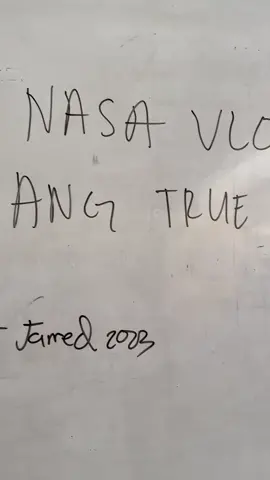 NASA VLO
ANG TRUE
- Jamed 2023